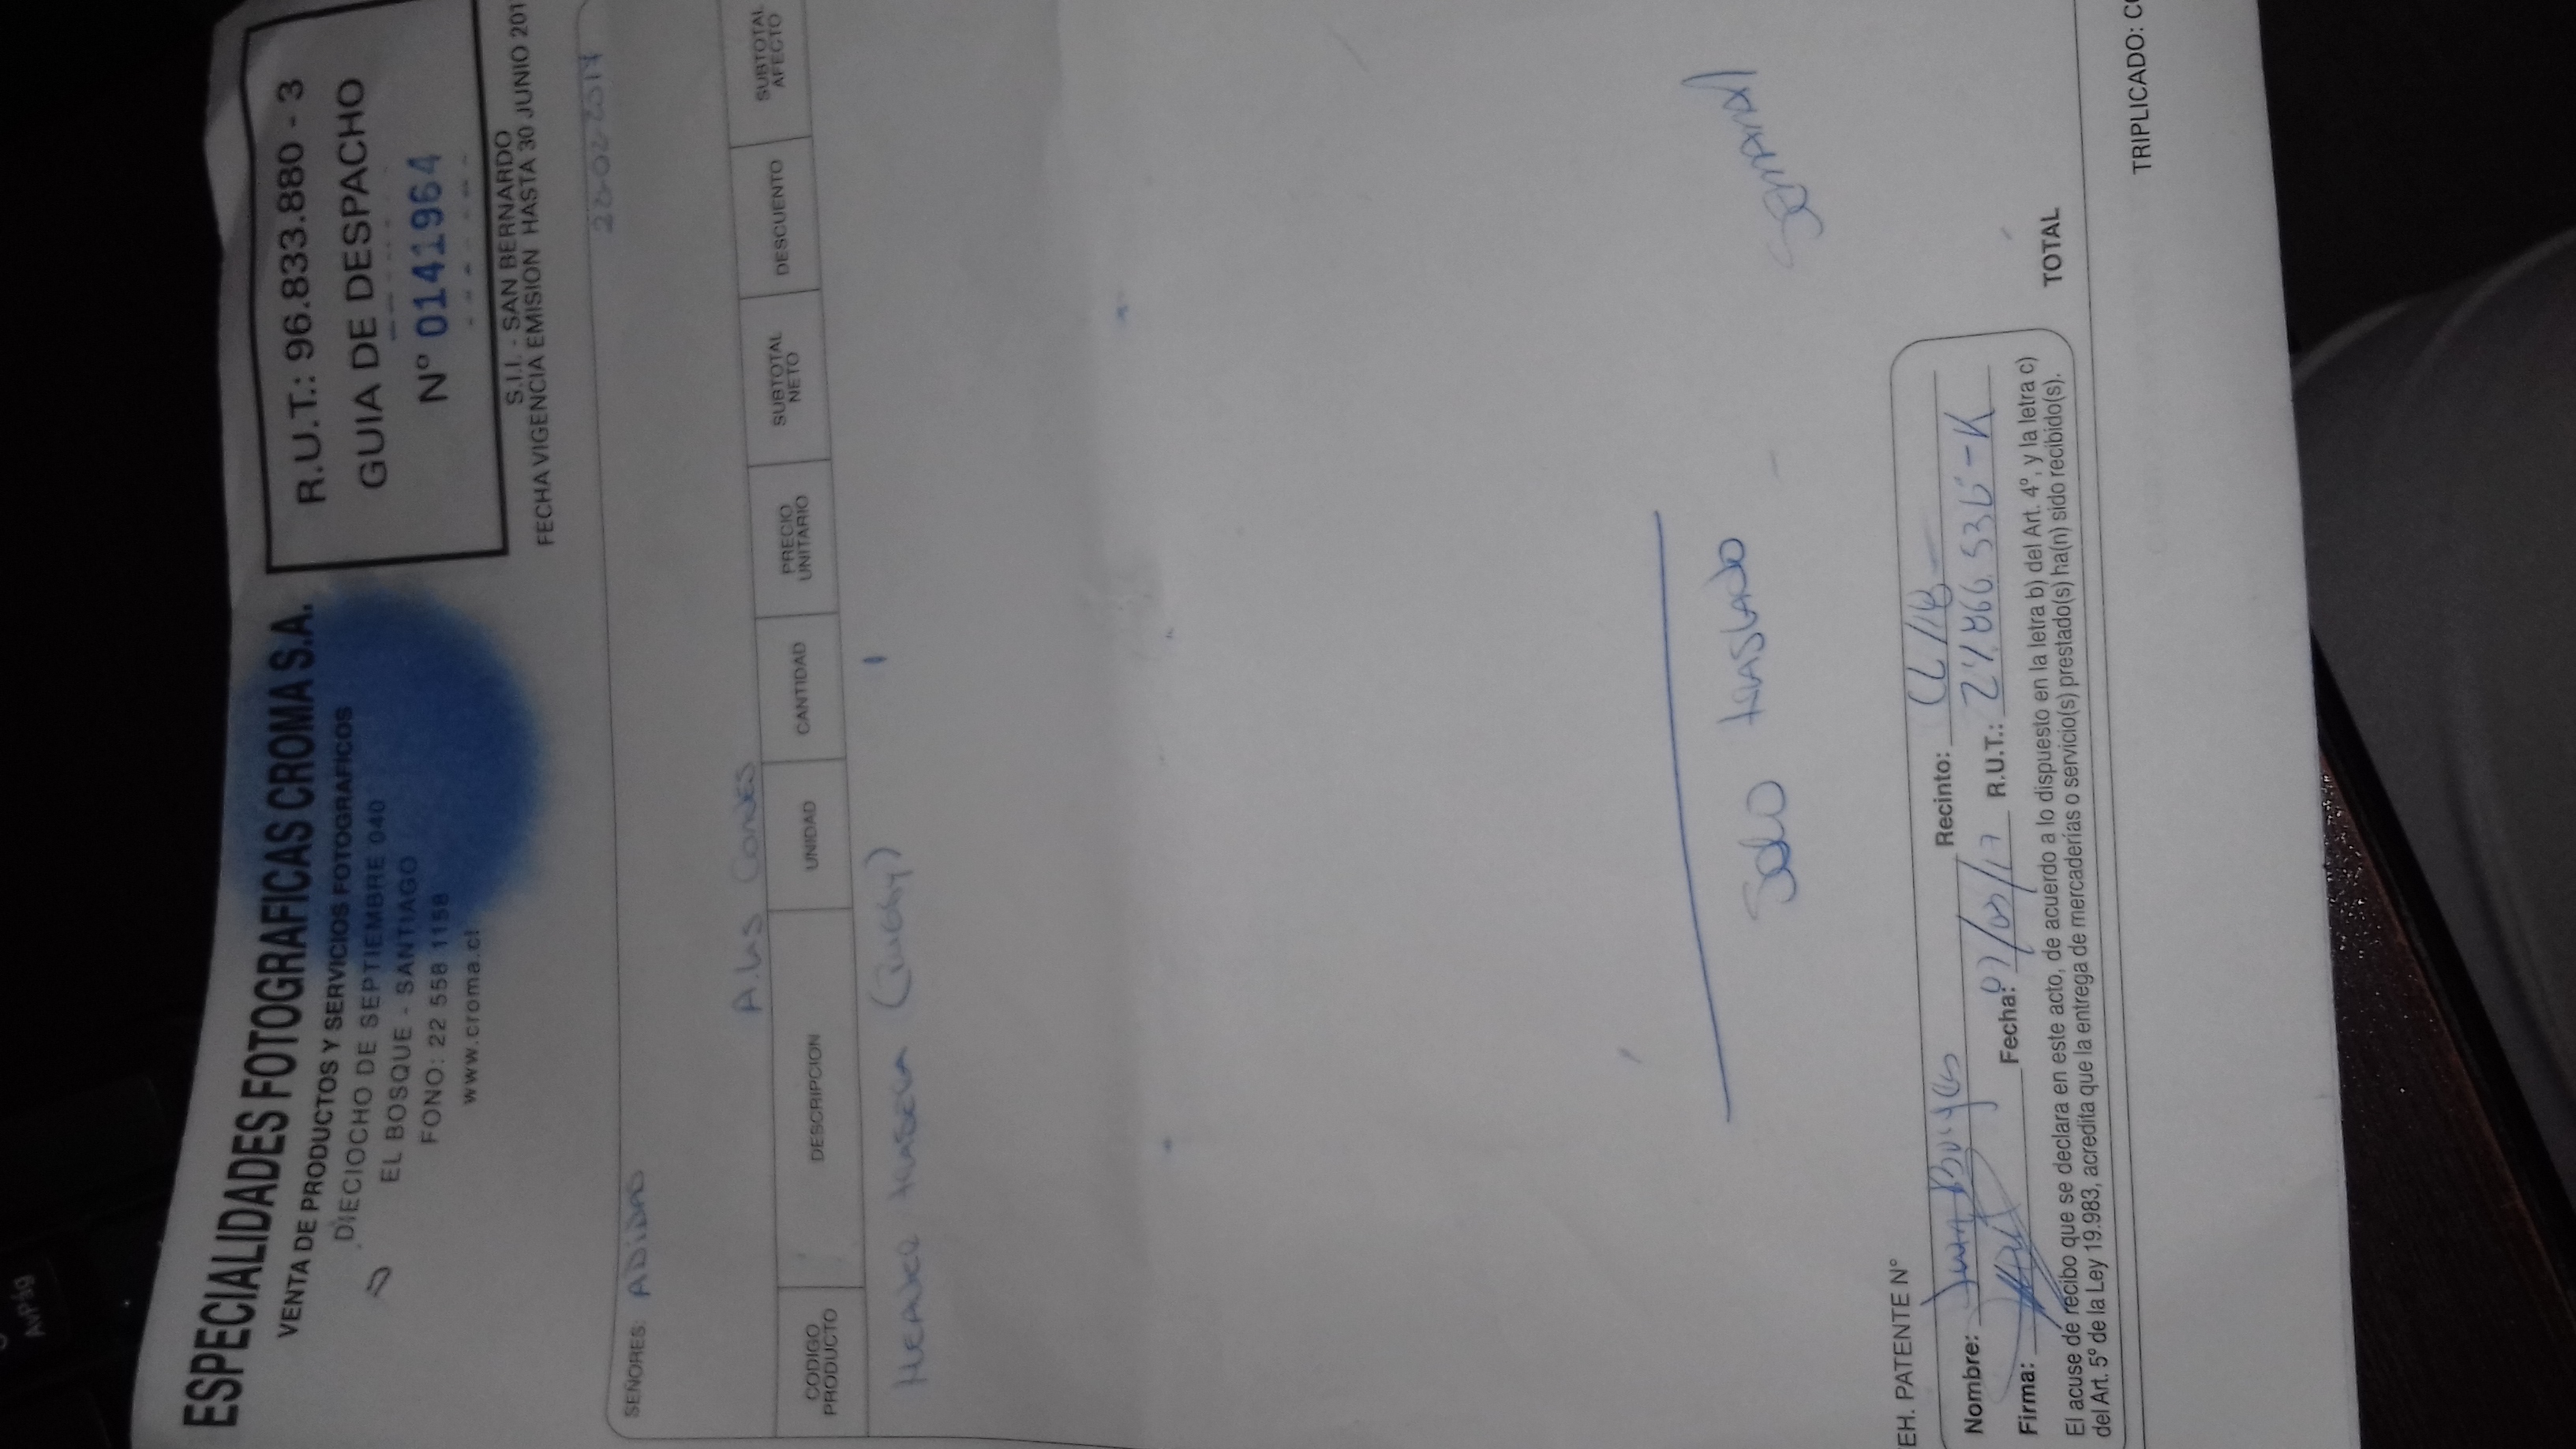 AvPág
ESPECIALIDADES FOTOGRAFICAS CROMA S.A.
VENTA DE PRODUCTOS Y SERVICIOS FOTOGRAFICOS
DIECIOCHO DE SEPTIEMBRE 040
EL BOSQUE - SANTIAGO
FONO: 22 558 1158
www.croma.cl
R.U.T.: 96.833.880 - 3
GUIA DE DESPACHO
Nº 0141964
S.I.I. - SAN BERNARDO
FECHA VIGENCIA EMISION HASTA 30 JUNIO 201
SEÑORES: ADIDAS
A. Las Condes
CODIGO PRODUCTO DESCRIPCION UNIDAD CANTIDAD PRECIO UNITARIO SUBTOTAL NETO DESCUENTO SUBTOTAL AFECTO
trasera (Rugby) 1
Solo traslado
Semanal
EH. PATENTE Nº
Nombre: Juan Recinto:
Firma: Fecha: 07/03/17 R.U.T.:
El acuse de recibo que se declara en este acto, de acuerdo a lo dispuesto en la letra b) del Art. 4º, y la letra c)
del Art. 5º de la Ley 19.983, acredita que la entrega de mercaderías o servicio(s) prestado(s) ha(n) sido recibido(s).
TOTAL
TRIPLICADO: